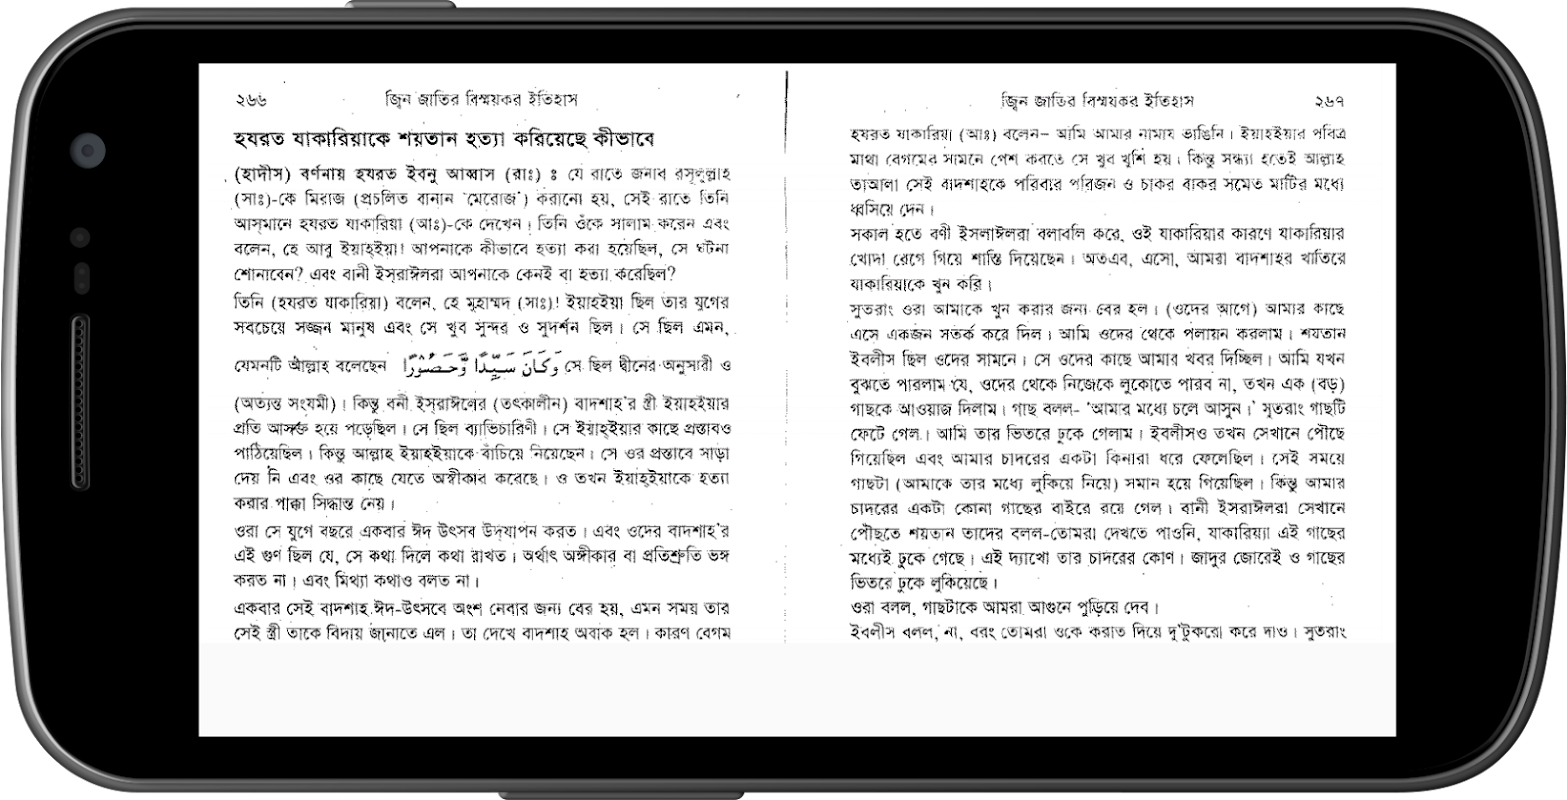 ২৬৬
জ্বিন জাতির বিস্ময়কর ইতিহাস
হযরত যাকারিয়াকে শয়তান হত্যা করিয়েছে কীভাবে
(হাদীস) বর্ণনায় হযরত ইবনু আব্বাস (রাঃ) ঃ যে রাতে জনাব রসূলুল্লাহ
(সাঃ)-কে মিরাজ (প্রচলিত বানান 'মেরাজ') করানো হয়, সেই রাতে তিনি
আস্‌মানে হযরত যাকারিয়া (আঃ)-কে দেখেন। তিনি ওঁকে সালাম করেন এবং
বলেন, হে আবু ইয়াহ্ইয়া! আপনাকে কীভাবে হত্যা করা হয়েছিল, সে ঘটনা
শোনাবেন? এবং বানী ইস্‌রাঈলরা আপনাকে কেনই বা হত্যা করেছিল?
তিনি (হযরত যাকারিয়া) বলেন, হে মুহাম্মদ (সাঃ)! ইয়াহইয়া ছিল তার যুগের
সবচেয়ে সজ্জন মানুষ এবং সে খুব সুন্দর ও সুদর্শন ছিল। সে ছিল এমন,
যেমনটি আল্লাহ বলেছেন وَكَانَ سَيِّدًا وَّحَصُوْرًا সে ছিল দ্বীনের অনুসারী ও
(অত্যন্ত সংযমী)। কিন্তু বনী ইস্‌রাঈলের (তৎকালীন) বাদশাহ'র স্ত্রী ইয়াহইয়ার
প্রতি আসক্ত হয়ে পড়েছিল। সে ছিল ব্যাভিচারিণী। সে ইয়াহ্ইয়ার কাছে প্রস্তাবও
পাঠিয়েছিল। কিন্তু আল্লাহ ইয়াহইয়াকে বাঁচিয়ে নিয়েছেন। সে ওর প্রস্তাবে সাড়া
দেয় নি এবং ওর কাছে যেতে অস্বীকার করেছে। ও তখন ইয়াহ্ইয়াকে হত্যা
করার পাক্কা সিদ্ধান্ত নেয়।
ওরা সে যুগে বছরে একবার ঈদ উৎসব উদ্‌যাপন করত। এবং ওদের বাদশাহ'র
এই গুণ ছিল যে, সে কথা দিলে কথা রাখত। অর্থাৎ অঙ্গীকার বা প্রতিশ্রুতি ভঙ্গ
করত না। এবং মিথ্যা কথাও বলত না।
একবার সেই বাদশাহ ঈদ-উৎসবে অংশ নেবার জন্য বের হয়, এমন সময় তার
সেই স্ত্রী তাকে বিদায় জানাতে এল। তা দেখে বাদশাহ অবাক হল। কারণ বেগম
জ্বিন জাতির বিস্ময়কর ইতিহাস
২৬৭
হযরত যাকারিয়া (আঃ) বলেন– আমি আমার নামায ভাঙিনি। ইয়াহইয়ার পবিত্র
মাথা বেগমের সামনে পেশ করতে সে খুব খুশি হয়। কিন্তু সন্ধ্যা হতেই আল্লাহ
তাআলা সেই বাদশাহকে পরিবার পরিজন ও চাকর বাকর সমেত মাটির মধ্যে
ধ্বসিয়ে দেন।
সকাল হতে বণী ইসলাঈলরা বলাবলি করে, ওই যাকারিয়ার কারণে যাকারিয়ার
খোদা রেগে গিয়ে শাস্তি দিয়েছেন। অতএব, এসো, আমরা বাদশাহর খাতিরে
যাকারিয়াকে খুন করি।
সুতরাং ওরা আমাকে খুন করার জন্য বের হল। (ওদের আগে) আমার কাছে
এসে একজন সতর্ক করে দিল। আমি ওদের থেকে পলায়ন করলাম। শয়তান
ইবলীস ছিল ওদের সামনে। সে ওদের কাছে আমার খবর দিচ্ছিল। আমি যখন
বুঝতে পারলাম যে, ওদের থেকে নিজেকে লুকোতে পারব না, তখন এক (বড়)
গাছকে আওয়াজ দিলাম। গাছ বলল- 'আমার মধ্যে চলে আসুন।' সুতরাং গাছটি
ফেটে গেল। আমি তার ভিতরে ঢুকে গেলাম। ইবলীসও তখন সেখানে পৌছে
গিয়েছিল এবং আমার চাদরের একটা কিনারা ধরে ফেলেছিল। সেই সময়ে
গাছটা (আমাকে তার মধ্যে লুকিয়ে নিয়ে) সমান হয়ে গিয়েছিল। কিন্তু আমার
চাদরের একটা কোনা গাছের বাইরে রয়ে গেল। বানী ইসরাঈলরা সেখানে
পৌছতে শয়তান তাদের বলল-তোমরা দেখতে পাওনি, যাকারিয়্যা এই গাছের
মধ্যেই ঢুকে গেছে। এই দ্যাখো তার চাদরের কোণ। জাদুর জোরেই ও গাছের
ভিতরে ঢুকে লুকিয়েছে।
ওরা বলল, গাছটাকে আমরা আগুনে পুড়িয়ে দেব।
ইবলীস বলল, না, বরং তোমরা ওকে করাত দিয়ে দু'টুকরো করে দাও। সুতরাং